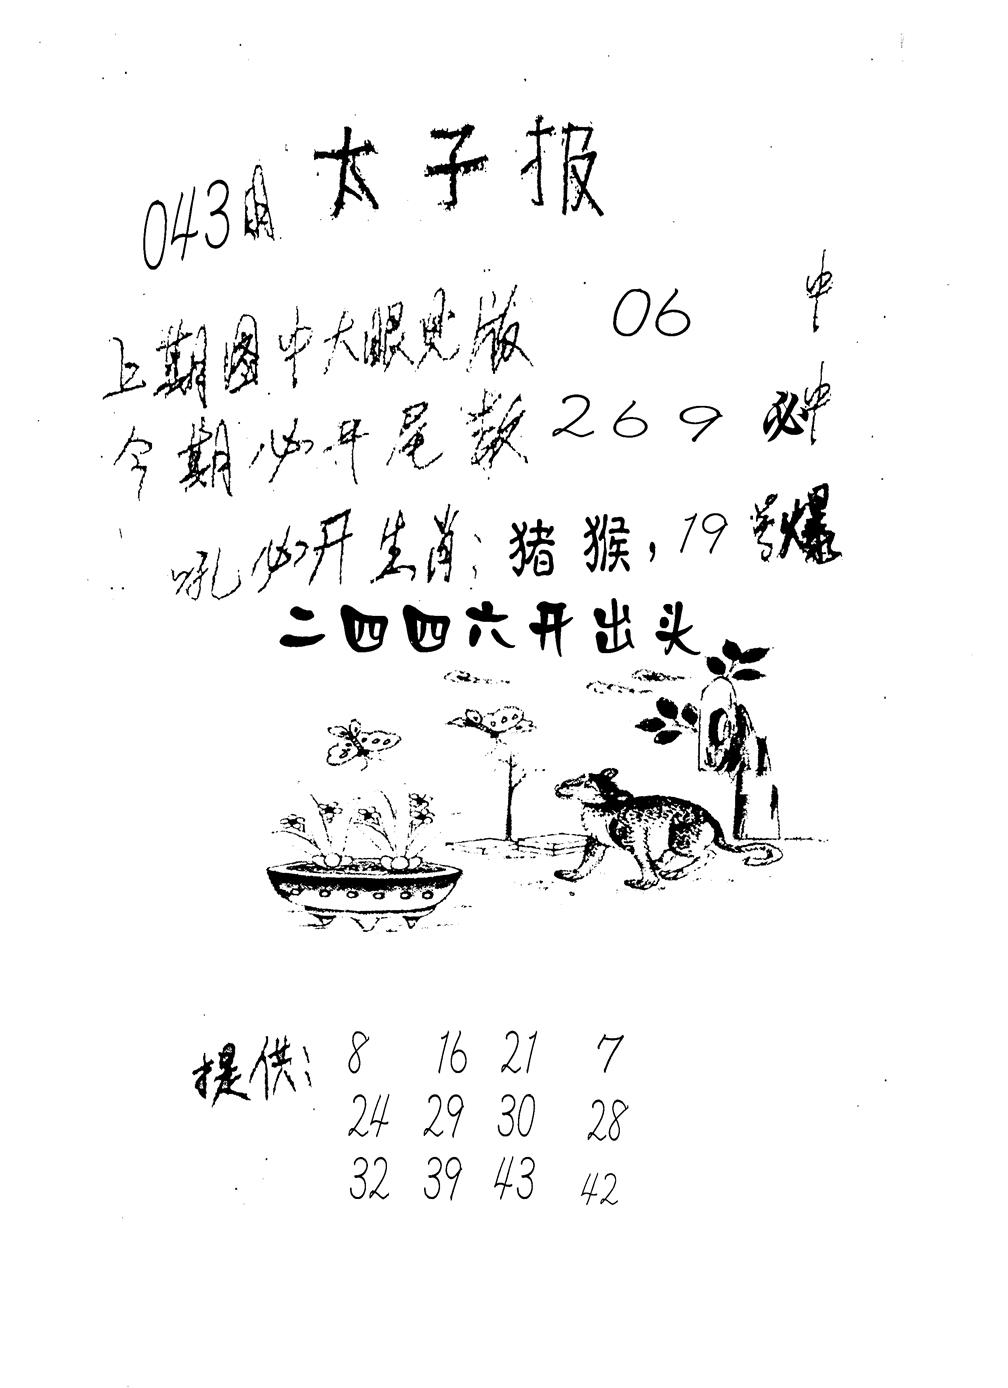 太子报
043期
上期图中大眼见版 06 中
今期必开尾数269必中
吼必开生肖：猪猴，19号爆
二四四六开出头
提供： 8 16 21 7
24 29 30 28
32 39 43 42